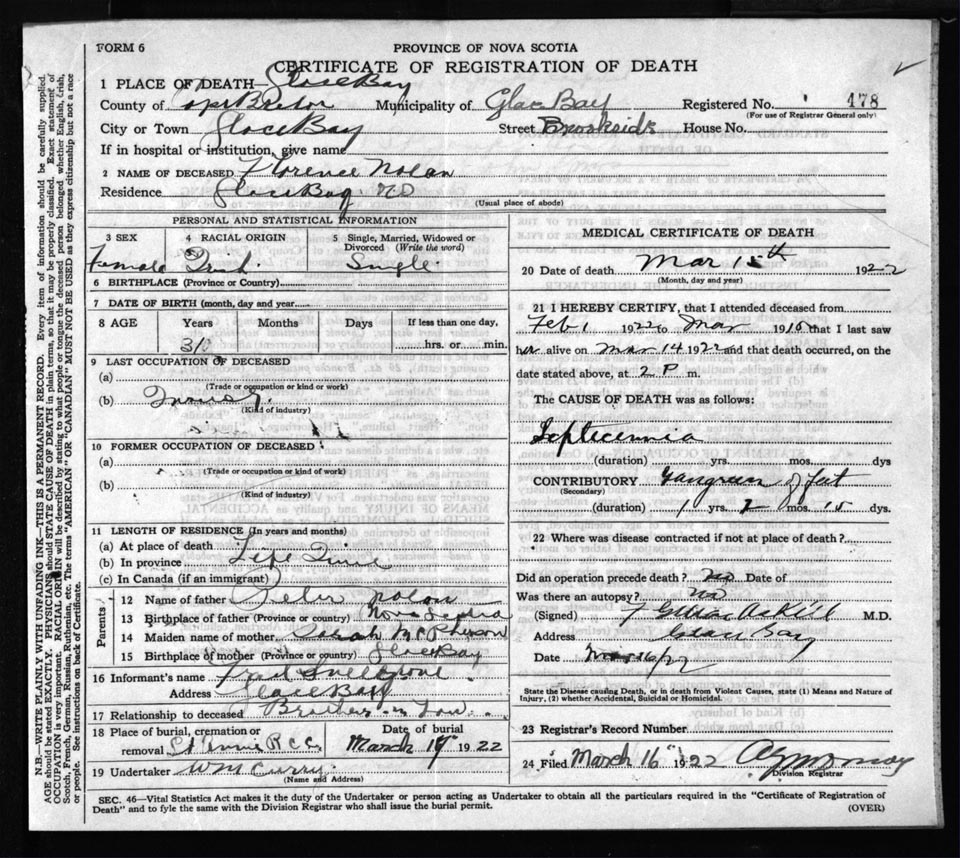 FORM 6
PROVINCE OF NOVA SCOTIA
CERTIFICATE OF REGISTRATION OF DEATH
1 PLACE OF DEATH Glace Bay
County of Cape Breton Municipality of Glace Bay Registered No. 178
(For use of Registrar General only)
City or Town Glace Bay Street Brookside House No.
If in hospital or institution, give name
2 NAME OF DECEASED Florence Nolan
Residence Glace Bay NS
(Usual place of abode)
PERSONAL AND STATISTICAL INFORMATION
3 SEX 4 RACIAL ORIGIN 5 Single, Married, Widowed or Divorced (Write the word)
Female Irish Single
6 BIRTHPLACE (Province or Country)
7 DATE OF BIRTH (month, day and year)
8 AGE Years Months Days If less than one day,
hrs. or min.
9 LAST OCCUPATION OF DECEASED
(a)
(Trade or occupation or kind of work)
(b)
(Kind of industry)
10 FORMER OCCUPATION OF DECEASED
(a)
(Trade or occupation or kind of work)
(b)
(Kind of industry)
11 LENGTH OF RESIDENCE (In years and months)
(a) At place of death
(b) In province Life Time
(c) In Canada (if an immigrant)
Parents
12 Name of father Peter Nolan
13 Birthplace of father (Province or country) Nova Scotia
14 Maiden name of mother Sarah McPherson
15 Birthplace of mother (Province or country) Glace Bay
16 Informant's name Fred
Address Glace Bay
17 Relationship to deceased Brother in Law
18 Place of burial, cremation or removal St Annes R C C Date of burial March 17 1922
19 Undertaker Wm Curry
(Name and Address)
MEDICAL CERTIFICATE OF DEATH
20 Date of death Mar 15th 1922
(Month, day and year)
21 I HEREBY CERTIFY, that I attended deceased from
Feb 1 1922 to Mar 1915 that I last saw
her alive on Mar 14 1922 and that death occurred, on the
date stated above, at 2 P m.
The CAUSE OF DEATH was as follows:
Septecemia
(duration) yrs. mos. dys
CONTRIBUTORY Gangreen of feet
(Secondary)
(duration) 1 yrs. mos. 15 dys.
22 Where was disease contracted if not at place of death?
Did an operation precede death? no Date of
Was there an autopsy? no
(Signed) M.D.
Address Glace Bay
Date Mar 16/22
State the Disease causing Death, or in death from Violent Causes, state (1) Means and Nature of Injury, (2) whether Accidental, Suicidal or Homicidal.
23 Registrar's Record Number
24 Filed March 16" 1922
Division Registrar
SEC. 46—Vital Statistics Act makes it the duty of the Undertaker or person acting as Undertaker to obtain all the particulars required in the "Certificate of Registration of
Death" and to fyle the same with the Division Registrar who shall issue the burial permit.
(OVER)
N.B.—WRITE PLAINLY WITH UNFADING INK—THIS IS A PERMANENT RECORD. Every item of information should be carefully supplied.
AGE should be stated EXACTLY. PHYSICIANS should STATE CAUSE OF DEATH in plain terms, so that it may be properly classified. Exact statement of
OCCUPATION is very important. RACIAL ORIGIN will be described by stating to what people or tongue the deceased person belonged whether English, Irish,
Scotch, French, German, Russian, Ruthenian, etc. The terms "AMERICAN" or "CANADIAN" MUST NOT BE USED as they express citizenship but not a race
or people. See instructions on back of Certificate.